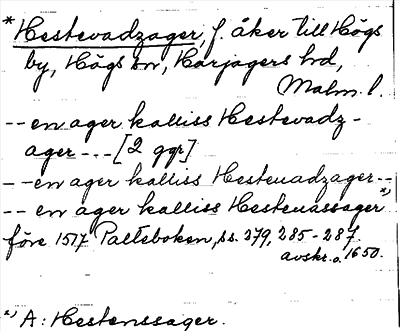 * Hestevadzager, f. åker till Högs
by, Högs sn, Harjagers hd,
Malm. l.
-- en ager kalliss Hestevadz-
ager --- [2 ggr]
-- en ager kalliss Hesteuadzager --
-- en ager kalliss Hesteuassager *)
före 1517 Palteboken, ss. 279, 285-287.
avskr. o. 1650.
*) A: Hestenssager.